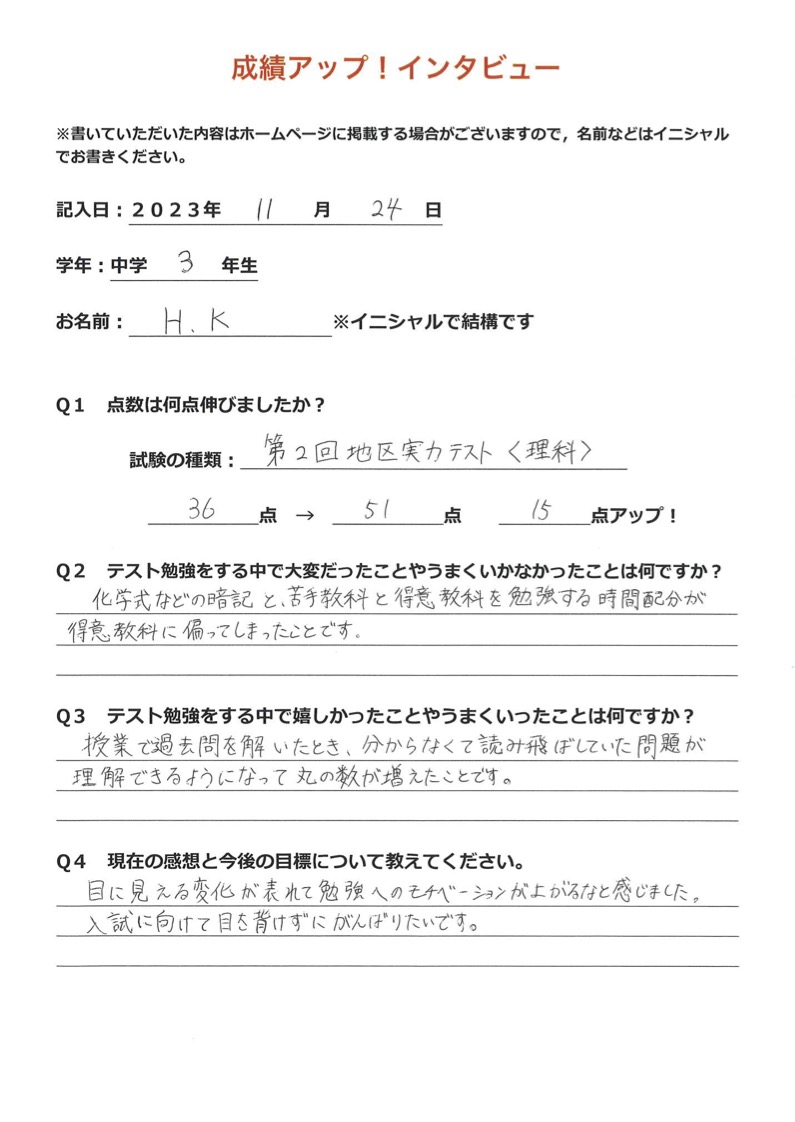 成績アップ！インタビュー
※書いていただいた内容はホームページに掲載する場合がございますので，名前などはイニシャル
でお書きください。
記入日：２０２３年 11 月 24 日
学年：中学 3 年生
お名前： H.K ※イニシャルで結構です
Ｑ１ 点数は何点伸びましたか？
試験の種類： 第2回地区実力テスト〈理科〉
36 点 → 51 点 15 点アップ！
Ｑ２ テスト勉強をする中で大変だったことやうまくいかなかったことは何ですか？
化学式などの暗記と、苦手教科と得意教科を勉強する時間配分が
得意教科に偏ってしまったことです。
Ｑ３ テスト勉強をする中で嬉しかったことやうまくいったことは何ですか？
授業で過去問を解いたとき、分からなくて読み飛ばしていた問題が
理解できるようになって丸の数が増えたことです。
Ｑ４ 現在の感想と今後の目標について教えてください。
目に見える変化が表れて勉強へのモチベーションが上がるなと感じました。
入試に向けて目を背けずにがんばりたいです。